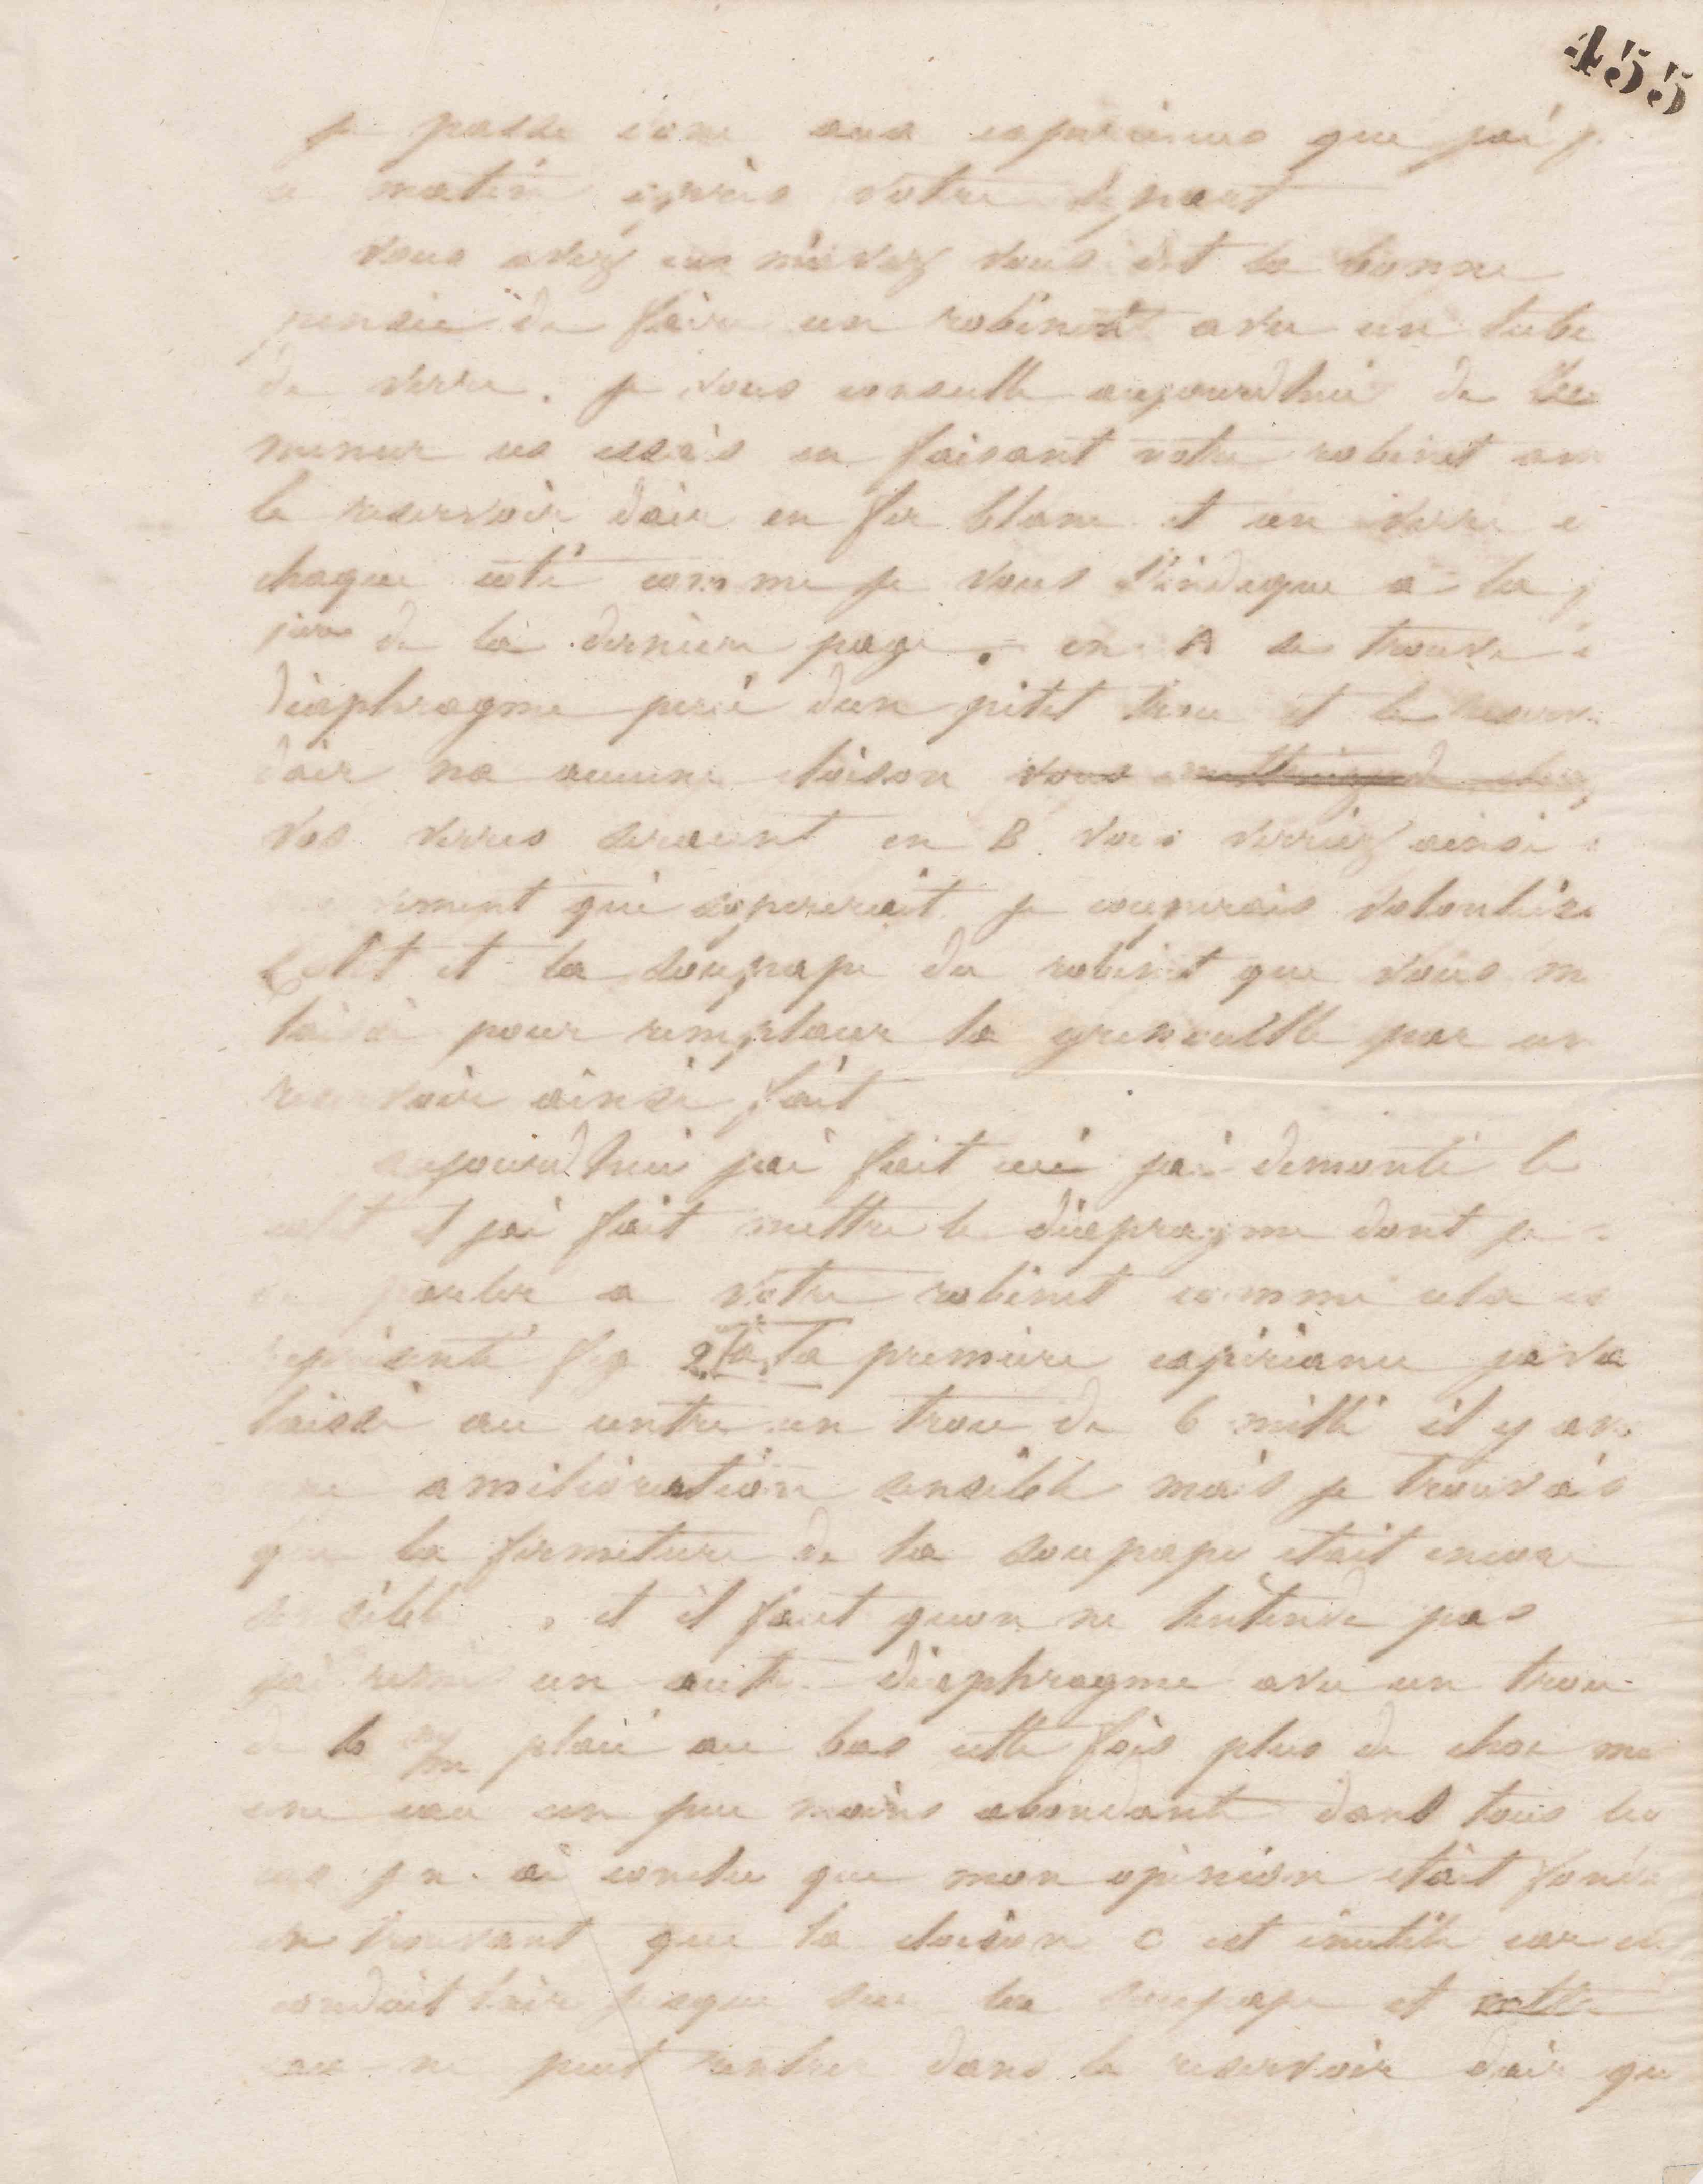 455
je passe donc aux expériences que j'ai
ce matin après votre départ
vous avez eu m'avez vous dit la bonne
pensée de faire un robinet avec un tube
de verre. je vous conseille aujourdhui de
mener ces essais en faisant votre robinet avec
le reservoir dair en fer blanc et un verre
chaque coté comme je vous l'indique a la
de la derniere page. en A se trouve
diaphragme percé dun petit trou et le reserv
dair na aucune cloison vous
vos verres seraient en B vous verriez ainsi
qui sopererait je couperais volontiers
et la soupape du robinet que vous m
laissé pour remplacer la grenouille par un
reservoir ainsi fait
aujourdhui jai fait ceci jai demonté le
et jai fait mettre le diapragme dont je
parler a votre robinet comme cela est
representé fig 2 a la premiere expérience java
laissé au centre un trou de 6 milli il y av
une amélioration sensible mais je trouvais
que la fermeture de la soupape etait encore
sensible, et il faut quon ne lentende pas
jai remis un autre diaphragme avec un trou
de 6 m/m placé au bas cette fois plus de choc
une eau un peu moins abondante dans tous les
cas jn ai conclu que mon opinion etait fondé
en trouvant que la cloison C est inutile car elle
conduit lair jusque sur la soupape et cette
eau ne peut rentrer dans le reservoir dair que